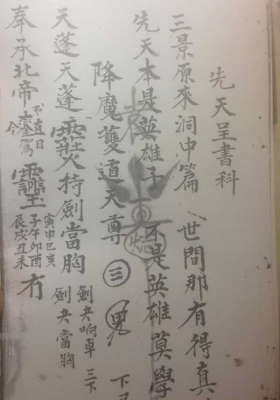 先天呈書科
三景原來洞中篇 世間那有得真
先天本是英雄子 不是英雄莫學
降魔雙道天尊 三
下
天蓬天蓬 持劍當胸
劍尖响卓三下
劍尖當胸
奉承北帝
書直日
寅申巳亥
子午卯酉
辰戌丑未